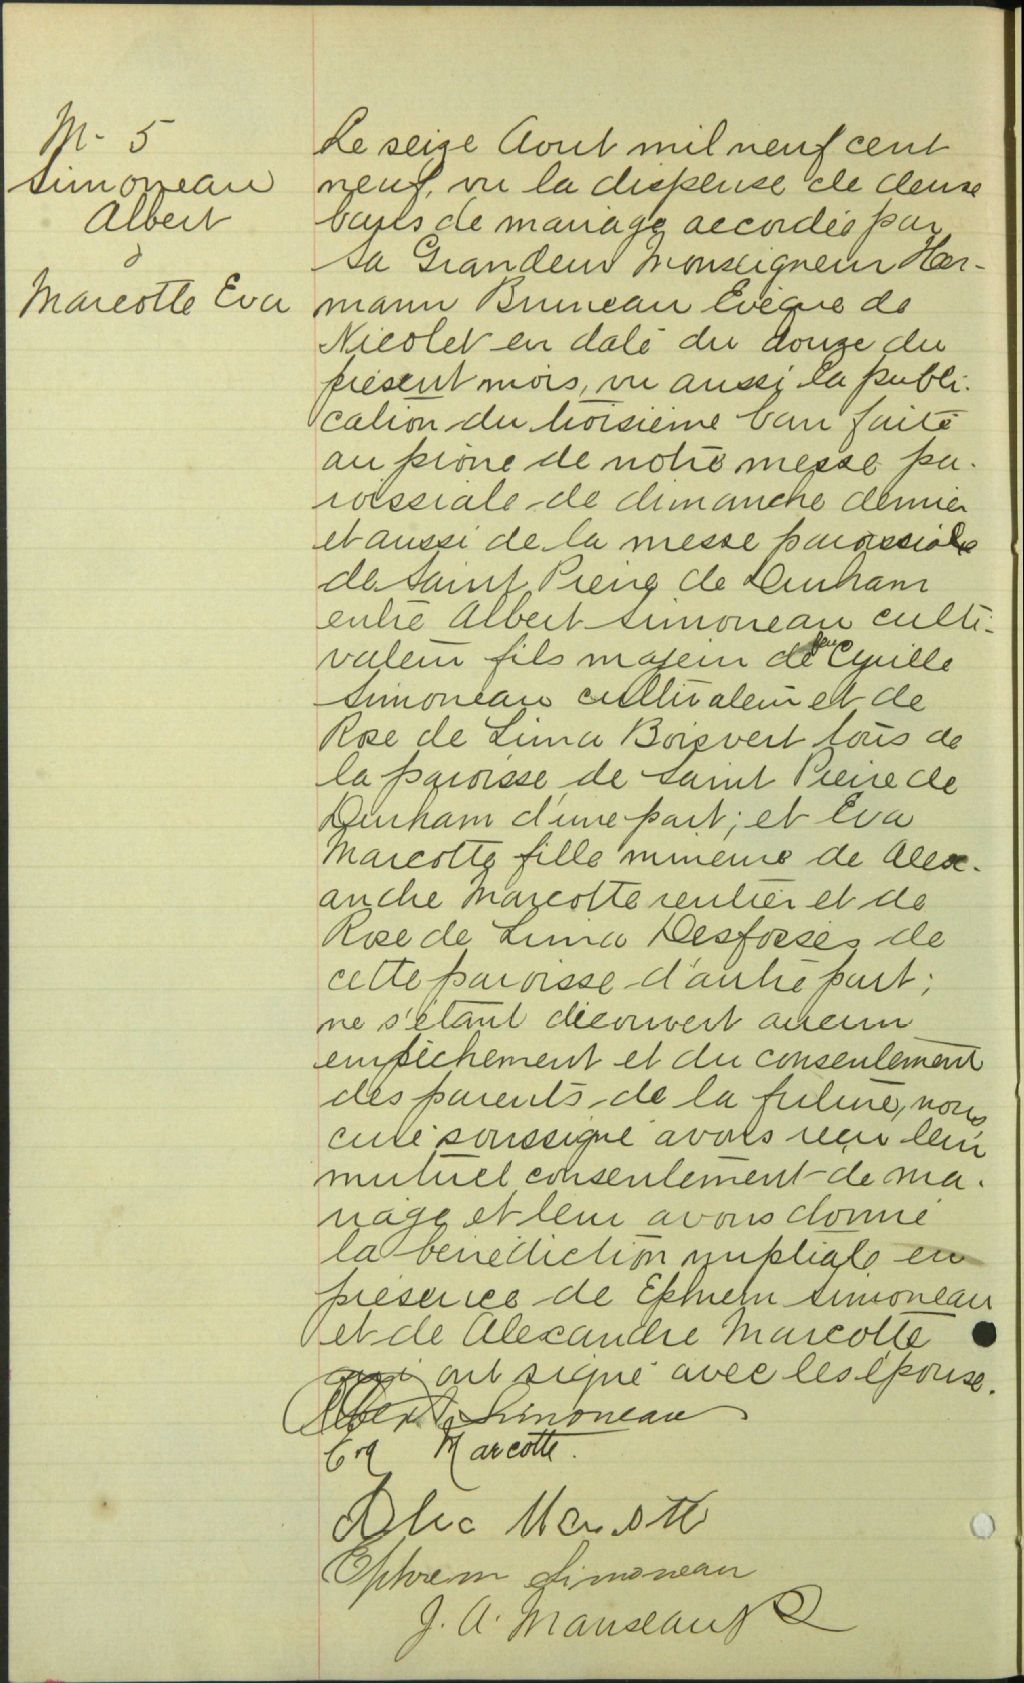 M- 5
Simoneau
Albert
&
Marcotte Eva
Le seize Aout mil neuf cent
neuf, vu la dispense de deuse
bans de mariage accordée par
Sa Grandeur Monseigneur Her-
mann Bruneau Evêque de
Nicolet en date du douze du
présent mois, vu aussi la publi-
cation du troisième ban faite
au prône de notre messe pa-
roissiale de dimanche dernier
et aussi de la messe paroissiale
de Saint Pierre de Durham
entre Albert Simoneau culti-
vateur fils majeur de feu Cyrille
Simoneau cultivateur et de
Rose de Lima Boisvert tous de
la paroisse de Saint Pierre de
Durham d'une part; et Eva
Marcotte fille mineure de Alex-
andre Marcotte rentier et de
Rose de Lima Desfossés de
cette paroisse d'autre part;
ne s'étant découvert aucun
empêchement et du consentement
des parents de la future, nous
curé soussigné avons reçu leur
mutuel consentement de ma-
riage et leur avons donné
la bénédiction nuptiale en
présence de Ephrem Simoneau
et de Alexandre Marcotte
qui ont signé avec les épouse.
Albert Simoneau
Eva Marcotte.
Alec Marcotte
Ephrem Simoneau
J. A. Manseau